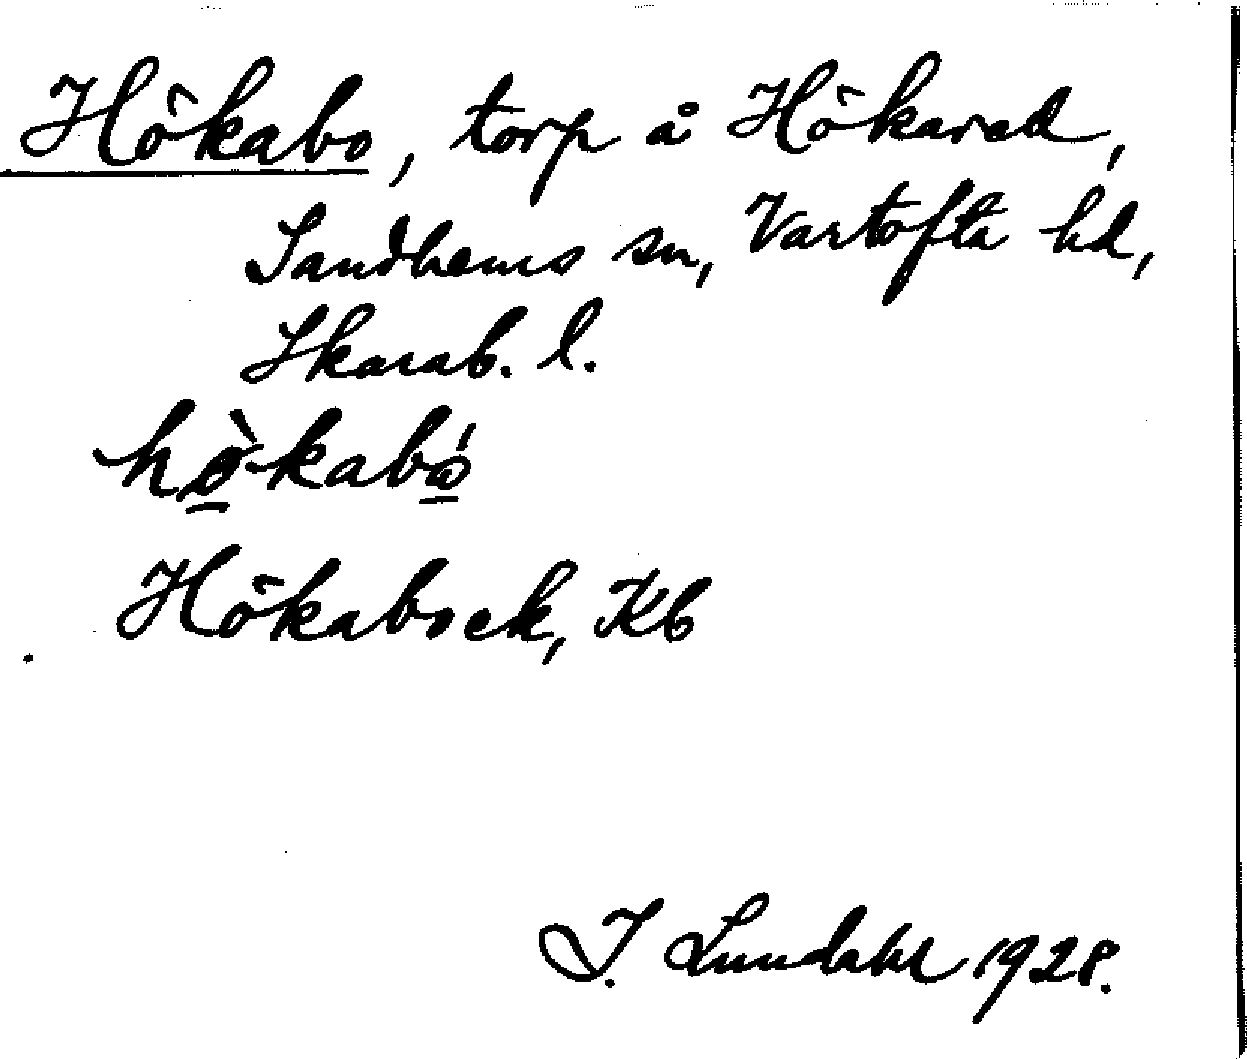 Hökabo, torp å Hökared,
Sandhems sn, Vartofta hd,
Skarab. l.
hø̀kabó
Hökabock, Kb
I. Lundahl 1928.